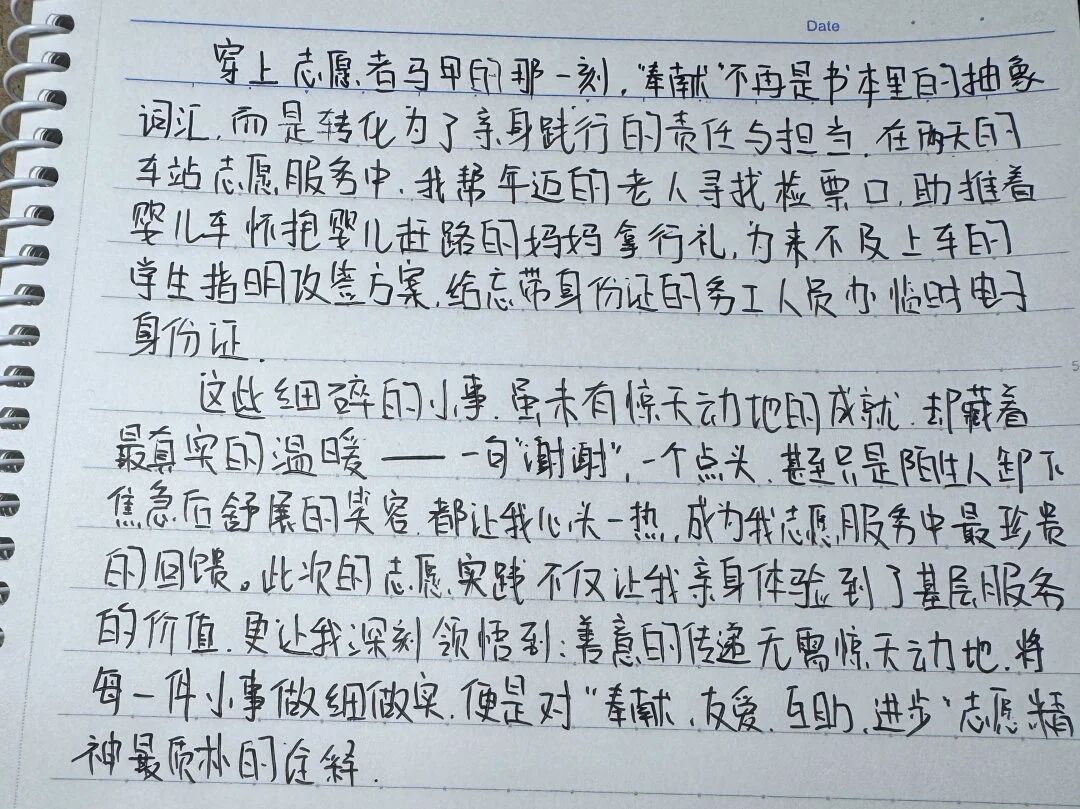 Date
穿上志愿者马甲的那一刻，“奉献”不再是书本里的抽象
词汇，而是转化为了亲身践行的责任与担当，在两天的
车站志愿服务中，我帮年迈的老人寻找检票口，助推着
婴儿车怀抱婴儿赶路的妈妈拿行礼，为来不及上车的
学生指明改签方案，给忘带身份证的务工人员办临时电子
身份证．
这些细碎的小事，虽未有惊天动地的成就，却藏着
最真实的温暖——一句“谢谢”，一个点头，甚至只是陌生人卸下
焦急后舒展的笑容，都让我心头一热，成为我志愿服务中最珍贵
的回馈。此次的志愿实践不仅让我亲身体验到了基层服务
的价值，更让我深刻领悟到：善意的传递无需惊天动地，将
每一件小事做细做实，便是对“奉献、友爱、互助、进步”志愿精
神最质朴的诠释．
5